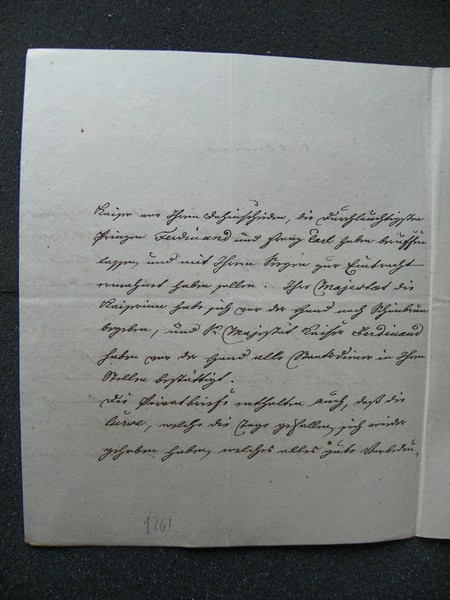 Kaiser vor Ihrem Dahinscheiden, die Durchlauchtigsten
Prinzen Ferdinand und Franz Carl haben beruffen
lassen, und mit Ihrem Seegen zur Eintracht
ermahnet haben sollen. Ihre Majestät die
Kaiserinn habe sich vor der Hand nach Schönbrunn
begeben, und Sr. Majestät Kaiser Ferdinand
haben vor der Hand alle Staatsdiener in Ihren
Stellen bestättigt.
Die Privatbriefe enthalten auch, daß die
welche die Tage gefallen, sich wieder
gehoben haben, welches alles gute Vorbedeu-
1261